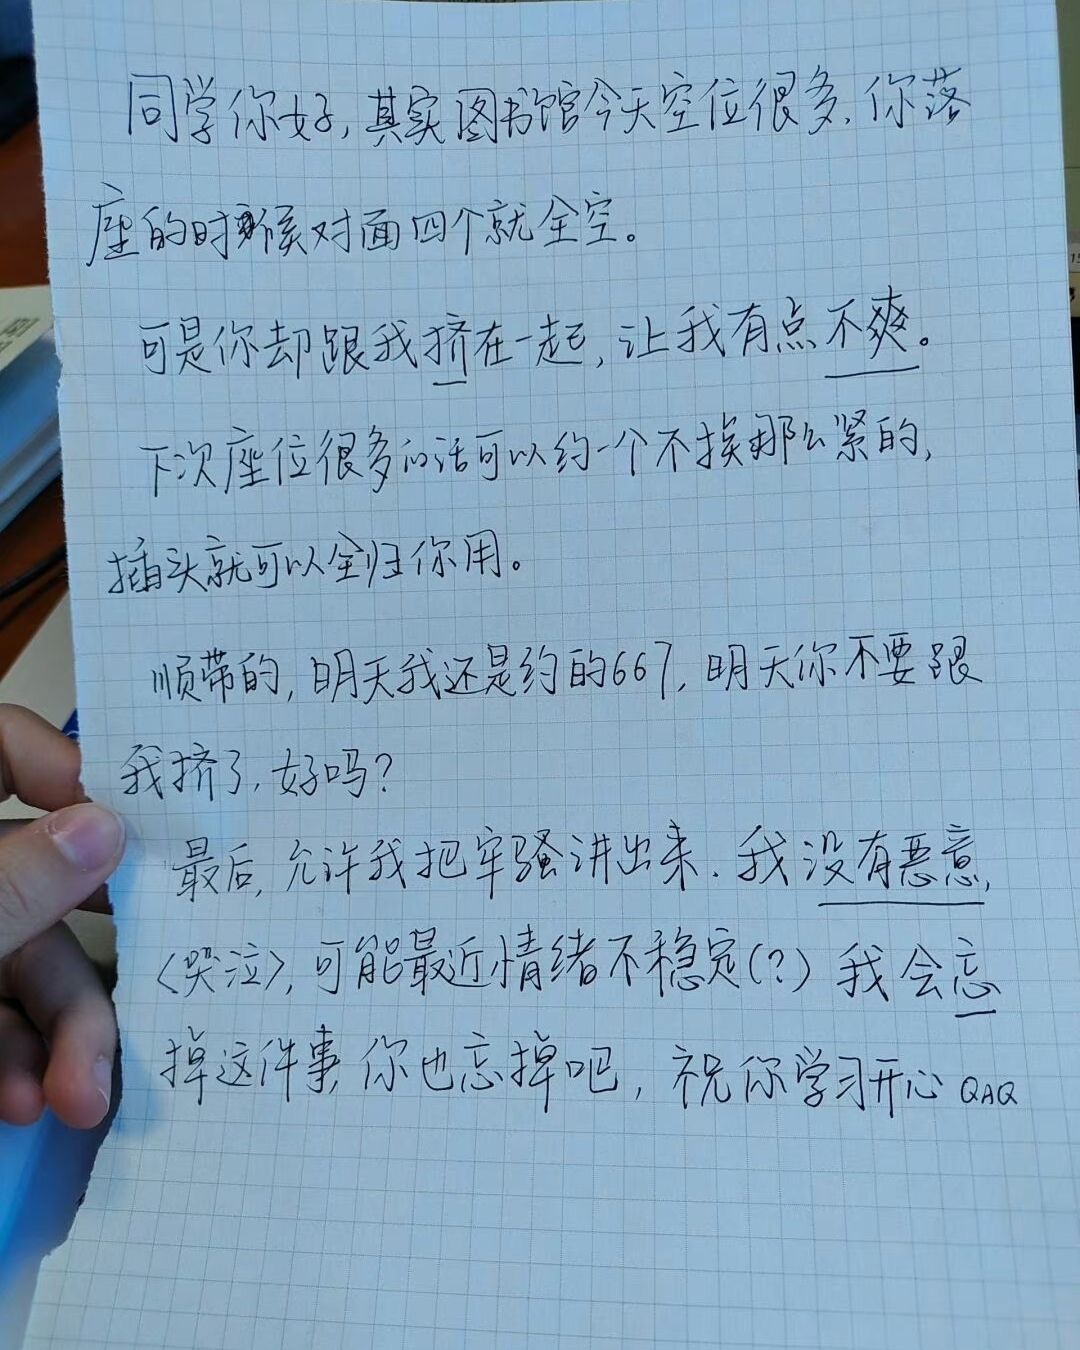 同学你好，其实图书馆今天空位很多，你落
座的时候对面四个就全空。
可是你却跟我挤在一起，让我有点不爽。
下次座位很多的话可以约一个不挨那么紧的，
插头就可以全归你用。
顺带的，明天我还是约的667，明天你不要跟
我挤了，好吗？
最后，允许我把牢骚讲出来．我没有恶意，
〈哭泣〉，可能最近情绪不稳定(?) 我会忘
掉这件事，你也忘掉吧，祝你学习开心 QAQ